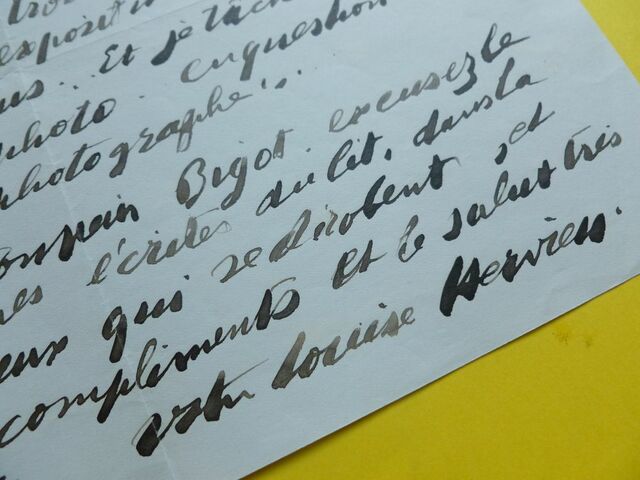 exposit
us.. Et je tâch
photo. en question
photographe...
Bigot. excusez le
écrites du lit, dans la
eux qui se dérobent, et
compliments et le salut très
votre Louise Hervieu.